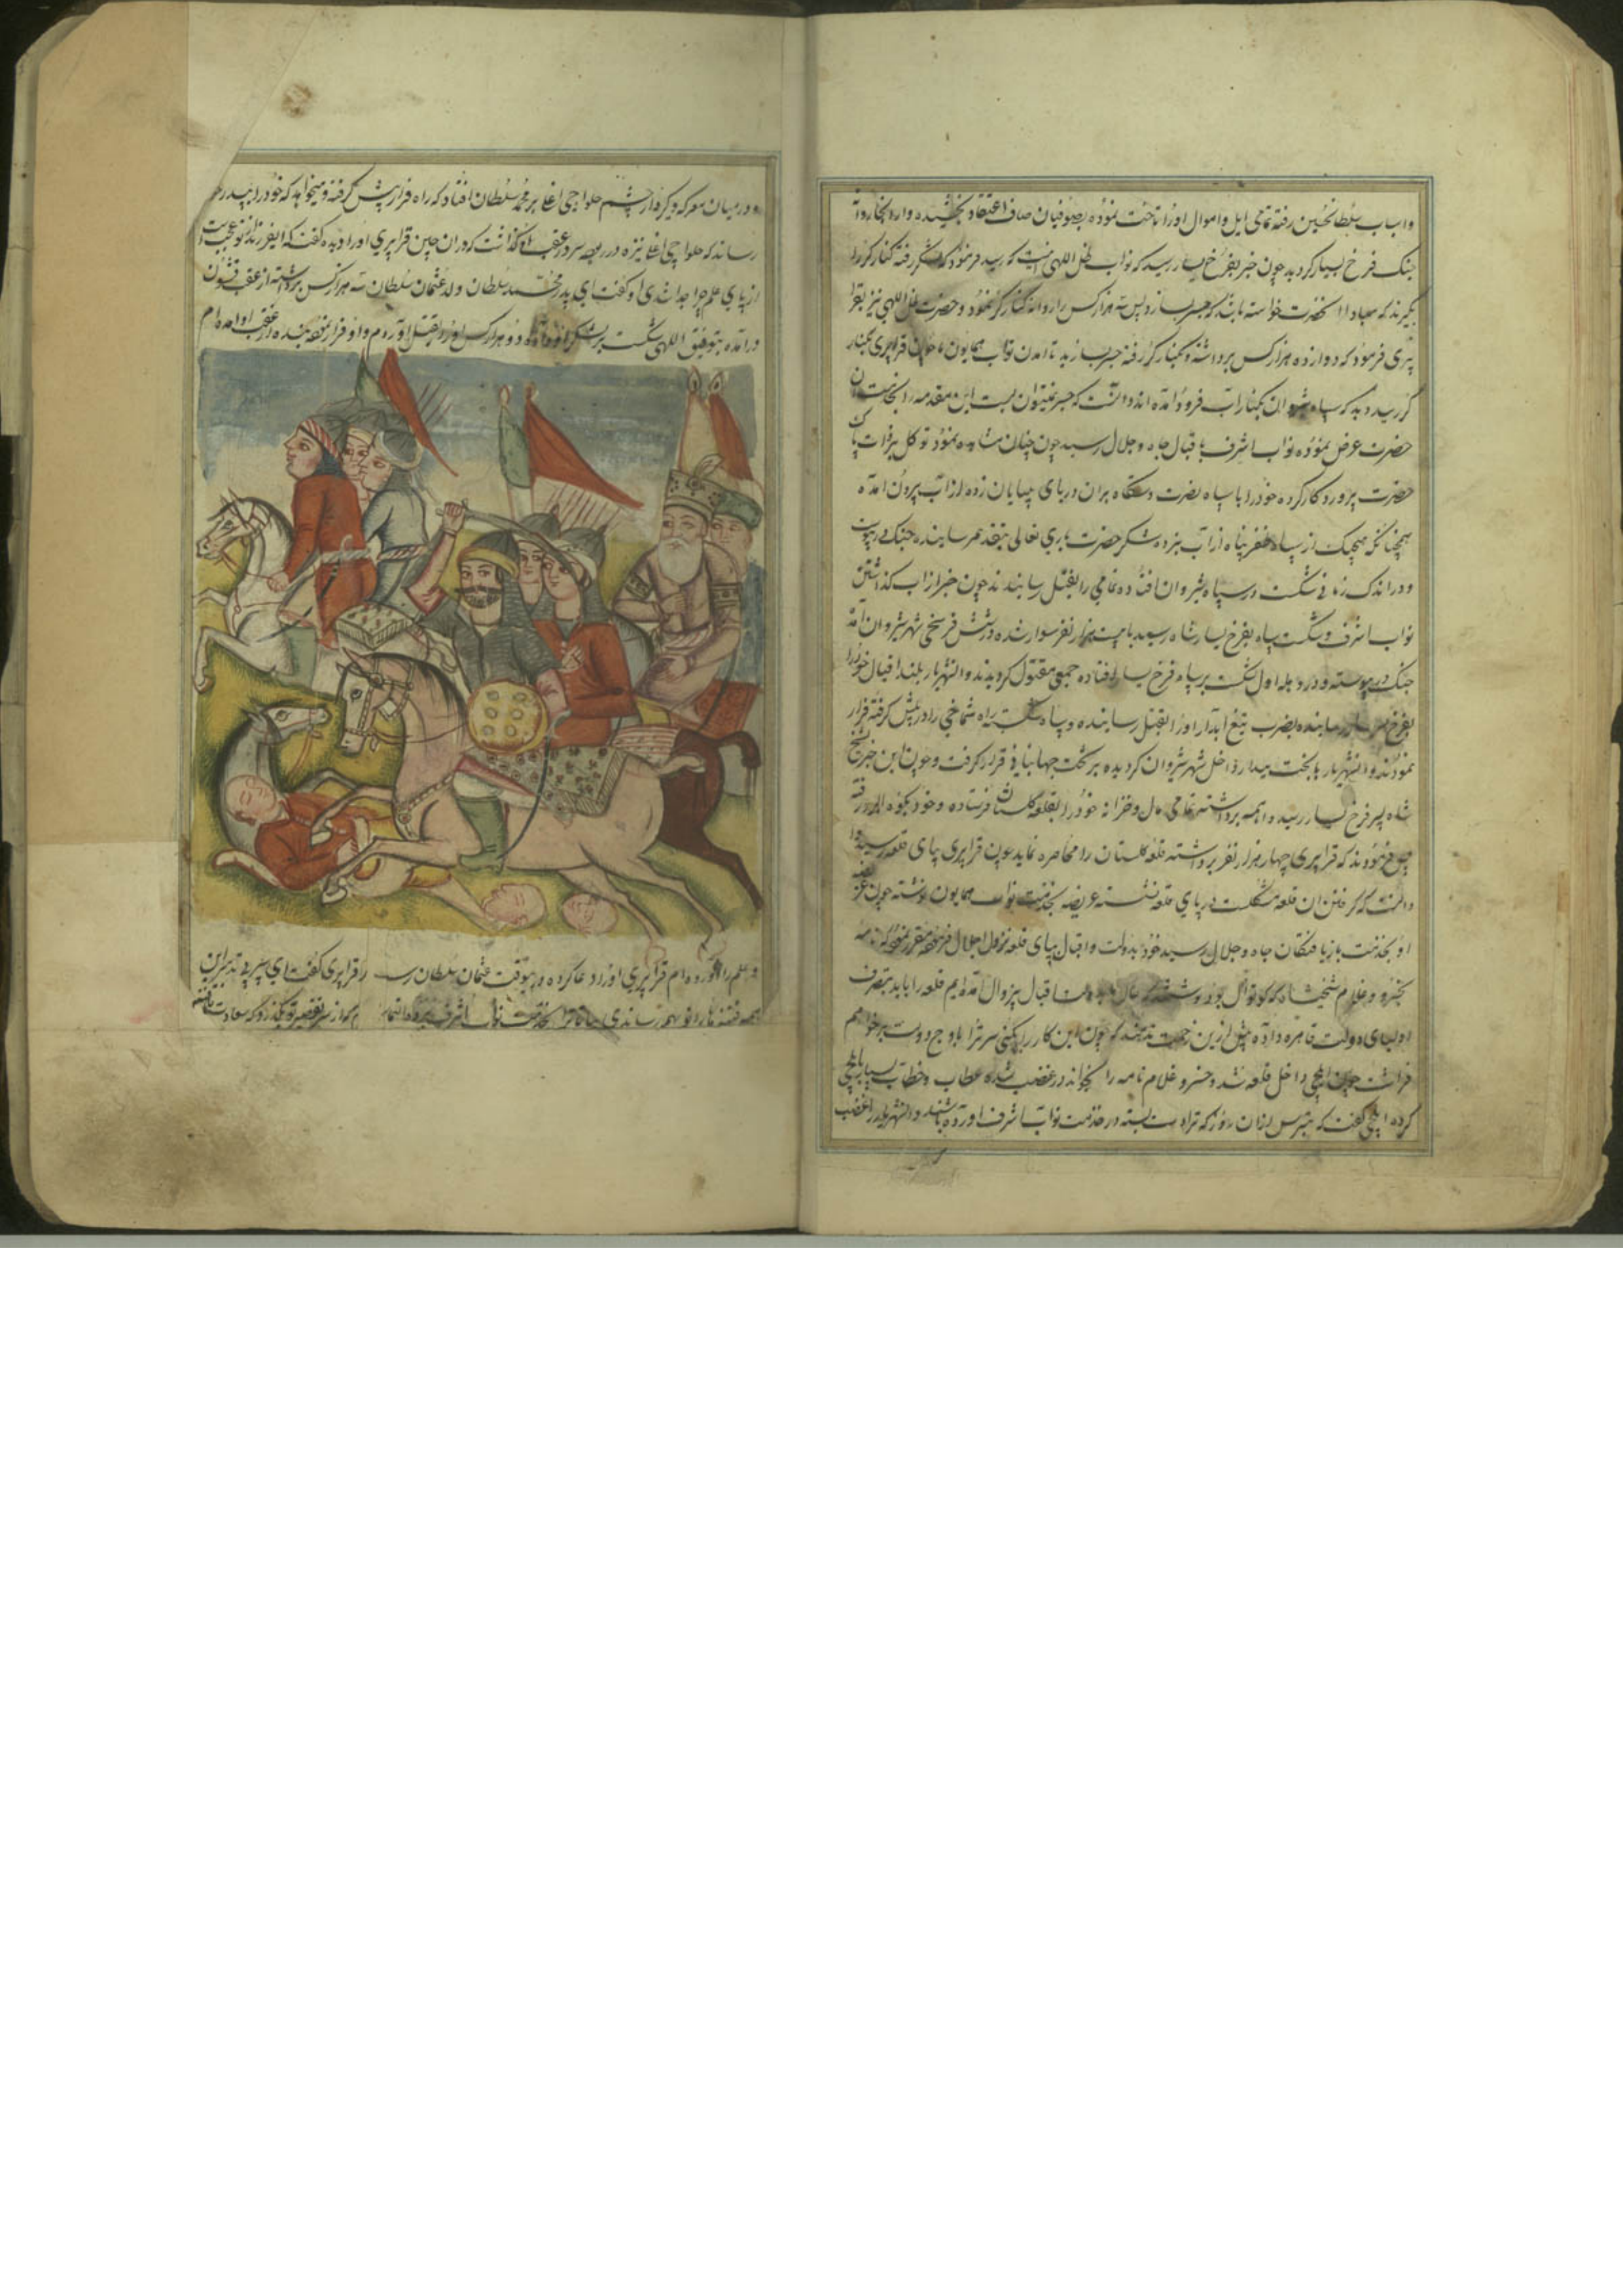 و اسباب سلطانحسین رفته تمامی ایل و اموال او را تاخت نموده بصوفیان صاف اعتقاد بخشیده وارد
جنک فرخ یسار کردید چون خبر بفرخ یسار رسید که نواب ظل اللهی بکر رسید فرمود که لشکر رفته کنار کر را
بگیرند که مبادا آنحضرت خواسته باشد که جسر بسازد پس سه هزار کس را روانه کنار کر نمود و حضرت ظل اللهی نیز بقرا
پیری فرمود که دوازده هزار کس برداشته و بکنار کر رفته جسر بسازید تا آمدن نواب همایون ما چون قراپیری بکنار
کر رسید دید که سپاه شیروان بکنار آب فرود آمده اند دانست که جسر نمیتوان بست این مقدمه را بخدمت آن
حضرت عرض نموده نواب اشرف با قبال جاه و جلال رسید چون چنان مشاهده نمود توکل بر ذات پاک
حضرت پروردکار کرده خود را با سپاه نصرت دستگاه بران دریای بیپایان زده از آب بیرون آمده
همچنانکه هیچیک از سپاه ظفر پناه از آب بنزد و شکر حضرت باری تعالی بتقدیم رسانیده جنک در پیوست
و در اندک زمانی شکست در سپاه شیروان افتاده تمامی را بقتل رسانیدند چون خبر از آب کذاشتن
نواب اشرف و شکست سپاه بفرخ یسار شاه رسید با بیست هزار نفر سوار شده در شش فرسخی شهر شیروان آمده
جنک در پیوسته و در وهله اول شکست بر سپاه فرخ یسار افتاده جمعی مقتول کردیدند و آنشهریار بلند اقبال خود را
بفرخ یسار رسانیده بضرب تیغ آبدار او را بقتل رسانیده و سپاه شکسته راه شماخی را در پیش کرفته فرار
نمودند و آنشهریار با بخت بیدار داخل شهر شیروان کردیده بر تخت جهانبانی قرار کرفت و چون این خبر بشیخ
شاه پسر فرخ یسار رسید واهمه برداشته تمامی مال و خزانه خود را بقلعه کلستان فرستاده و خود بکوه البرز رفته
فرمودند که قراپیری چهار هزار نفر برداشته قلعه کلستان را محاصره نماید چون قراپیری بپای قلعه رسید و
دانست که کرفتن ان قلعه مشکلست در پای قلعه نشسته عریضه بخدمت نواب همایون نوشته چون عریضه
او بخدمت باریافتکان جاه و جلال رسید خود بدولت و اقبال بپای قلعه نزول اجلال فرموده مقرر نمود که نامه
بخسرو غلام شیخشاه که کوتوال بود نوشتند که اقبال بیزوال آمده ایم قلعه را باید بتصرف
اولیای دولت قاهره داده پیش ازین زحمت ندهند که چون این کار را نکنی سر ترا باوج دروست بر خواهم
فراشت چون ایلچی داخل قلعه شد و خسرو غلام نامه را بخواند در غضب شده عطاب و خطاب بسیار بایلچی
کرده ایلچی کفت که بترس ازان روز که ترا دست بسته در خدمت نواب اشرف آورده باشند و آنشهریار در غضب
و در میان معرکه و کیرودار چشم حلواچی اغلی بر محمد سلطان افتاد که راه فرار پیش کرفته و میخواهد که خود را بپدر
رساند که حلواچی اغلی نیزه در ربوده سر در عقب او کذاشت که دران حین قراپیری او را دیده کفت که ایفرزند
از پای علم چرا جدا شدی او کفت ای پدر محمد سلطان ولد عثمان سلطان سه هزار کس برداشته از عقب قشون
درآمده بتوفیق اللهی شکست بر لشکر او داده و دو هزار کس او را بقتل آوردم و او فرار نموده بنده از عقب او آمده ام
و علم را آورده ام قراپیری او را دعا کرده در اینوقت عثمان سلطان رسید قراپیری کفت ای پیر بی تدبیر این
همه فتنه ها را تو بهم رساندی بیا تا ترا بخدمت نواب اشرف برده التماس کنم که از سر تقصیر تو بگذرد که سعادت یافته